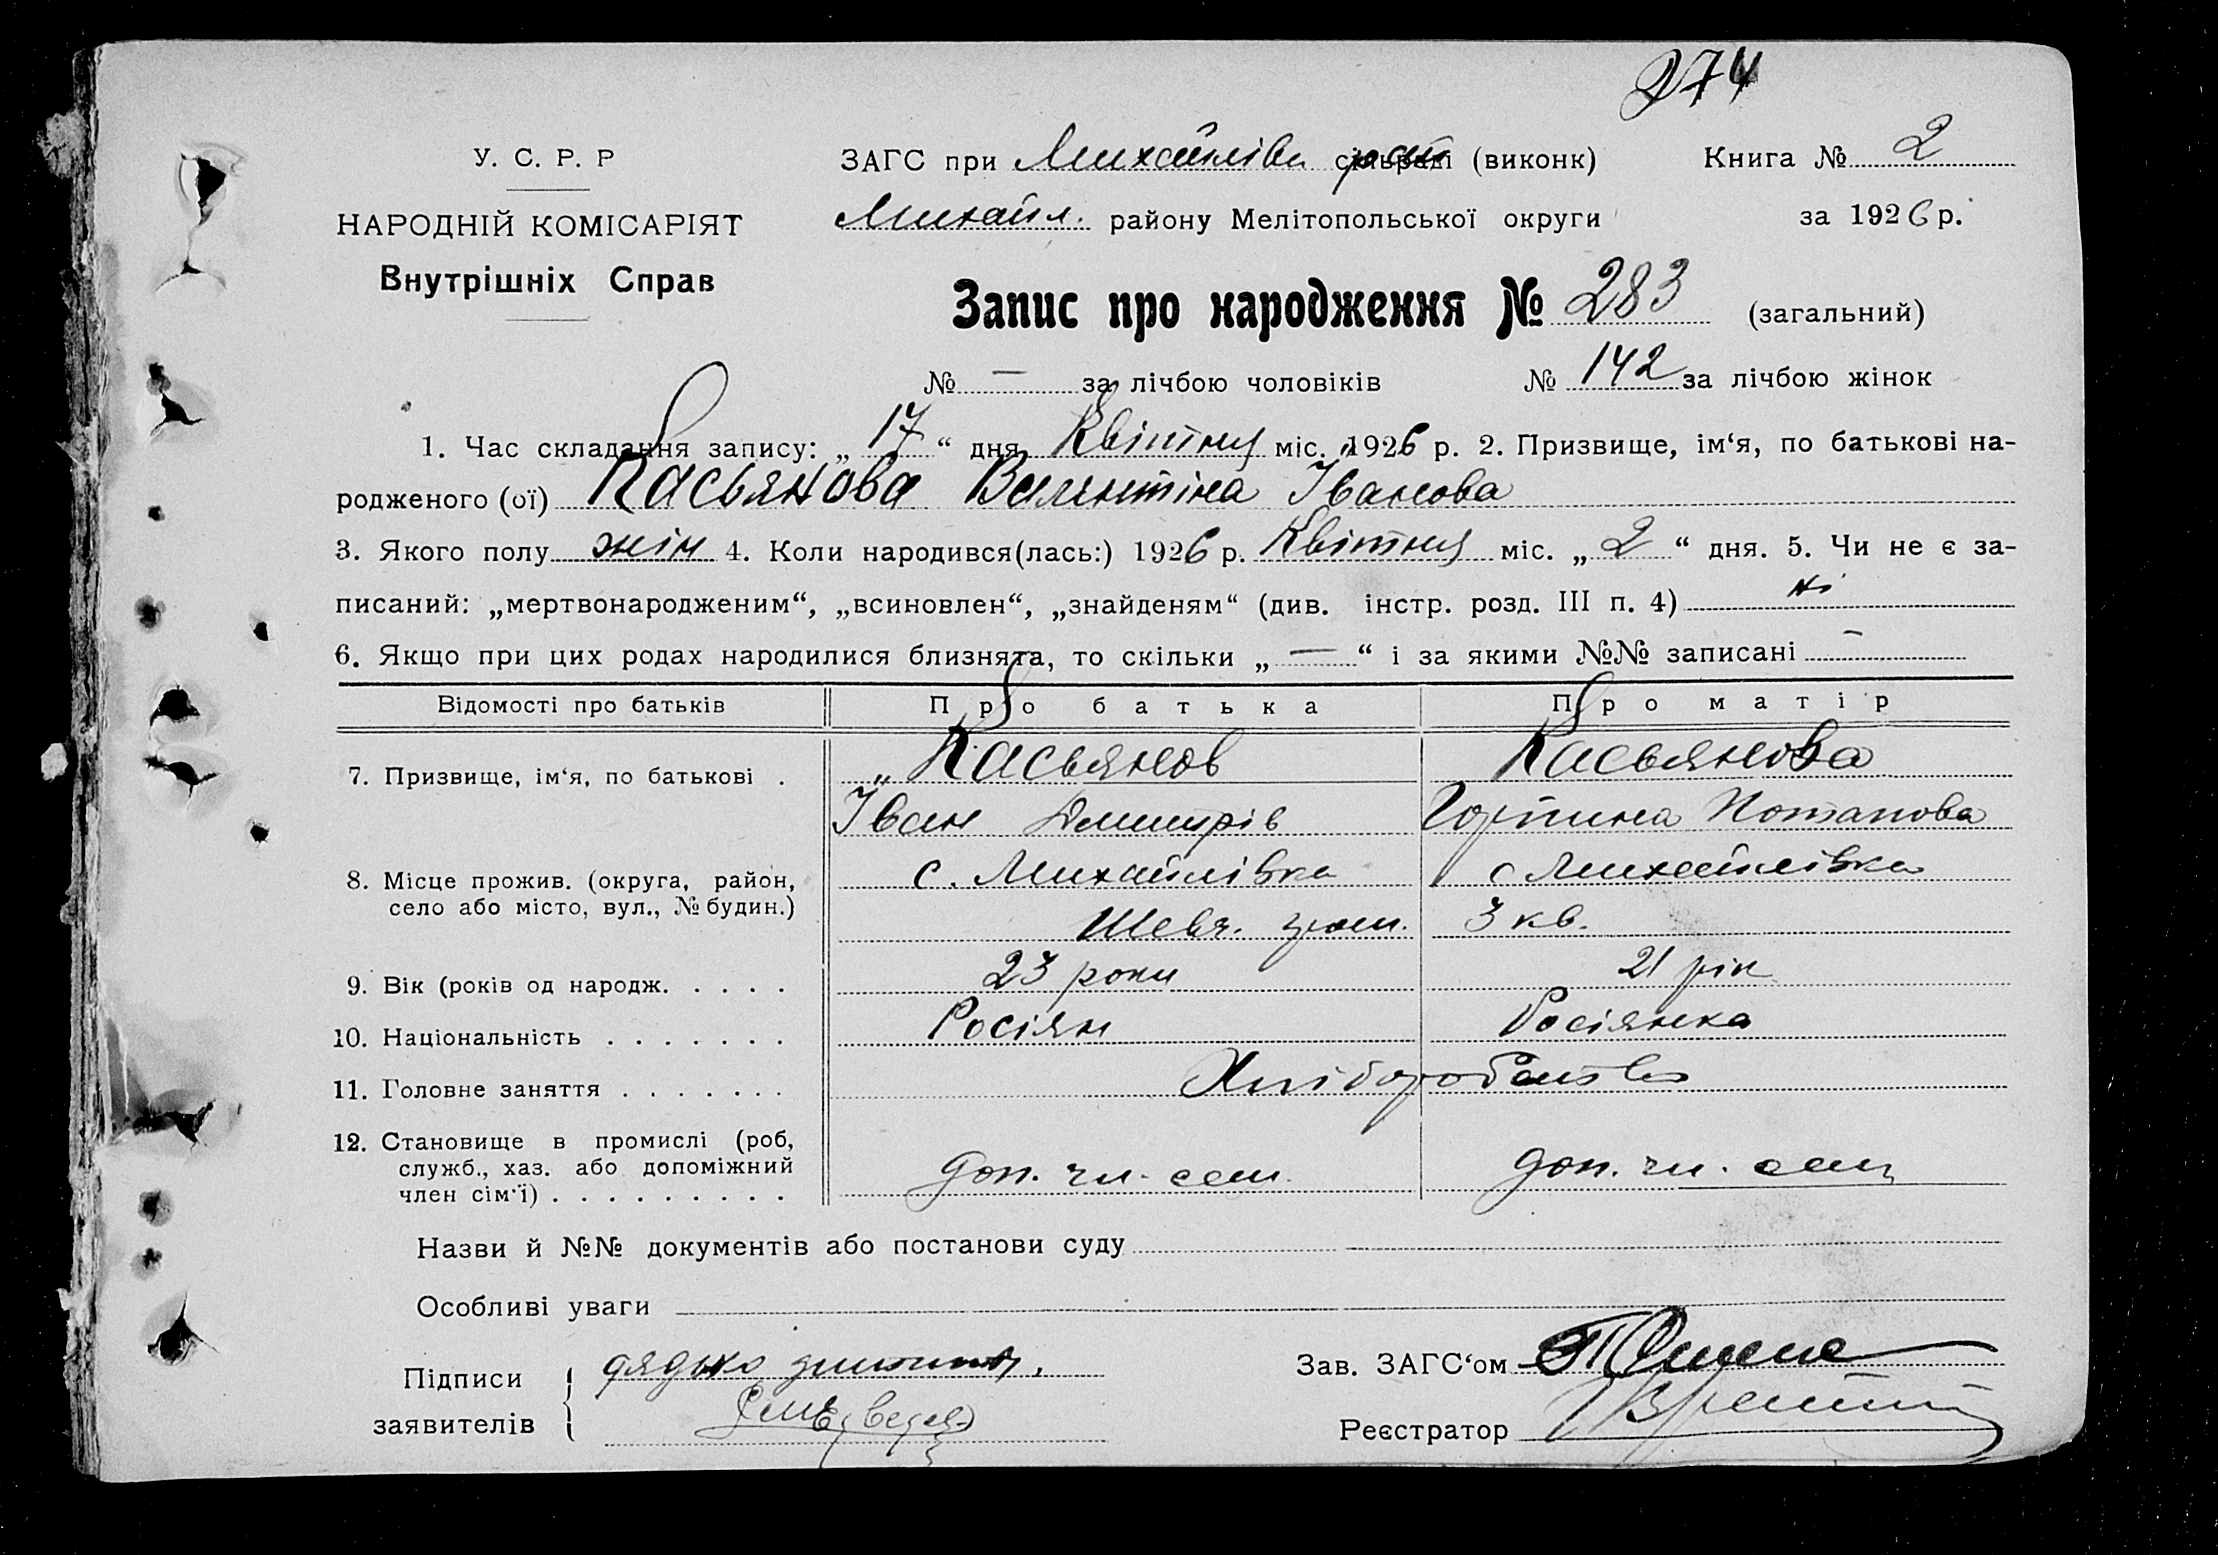 274
У. С. Р. Р
ЗАГС при Михайлівк сільраді (виконк) Книга № 2
НАРОДНІЙ КОМІСАРІЯТ
Михайл. району Мелітопольської округи за 1926 р.
Внутрішніх Справ
Запис про народження № 283 (загальний)
№ — за лічбою чоловіків № 142 за лічбою жінок
1. Час складання запису: „ 17 “ дня Квітня міс. 1926 р. 2. Призвище, ім‘я, по батькові на-
родженого (ої) Касьянова Валентіна Іванова
3. Якого полу жін 4. Коли народився(лась:) 1926 р. Квітня міс. „ 2 “ дня. 5. Чи не є за-
писаний: „мертвонародженим“, „всиновлен“, „знайденям“ (див. інстр. розд. III п. 4) ні
6. Якщо при цих родах народилися близнята, то скільки „ — “ і за якими №№ записані —
Відомості про батьків Про батька Про матір
7. Призвище, ім‘я, по батькові . „ Касьянов Касьянова
Іван Дмитрів Горпина Потапова
8. Місце прожив. (округа, район, с. Михайлівка с Михайлівка
село або місто, вул., № будин.) Шевч. 3 кв.
9. Вік (років од народж. . . . . 23 роки 21 рік
10. Національність . . . . . . . Росіян Росіянка
11. Головне заняття . . . . . . . Хліборобство
12. Становище в промислі (роб,
служб., хаз. або допоміжний доп. чл. сем. доп. чл. сем
член сім‘ї) . . . . . . . . . .
Назви й №№ документів або постанови суду
Особливі уваги
Підписи дядько дитини,
Зав. ЗАГС‘ом
заявителів
Реєстратор